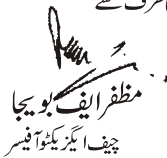 مظفر ایف بویجا
چیف ایگزیکٹو آفیسر